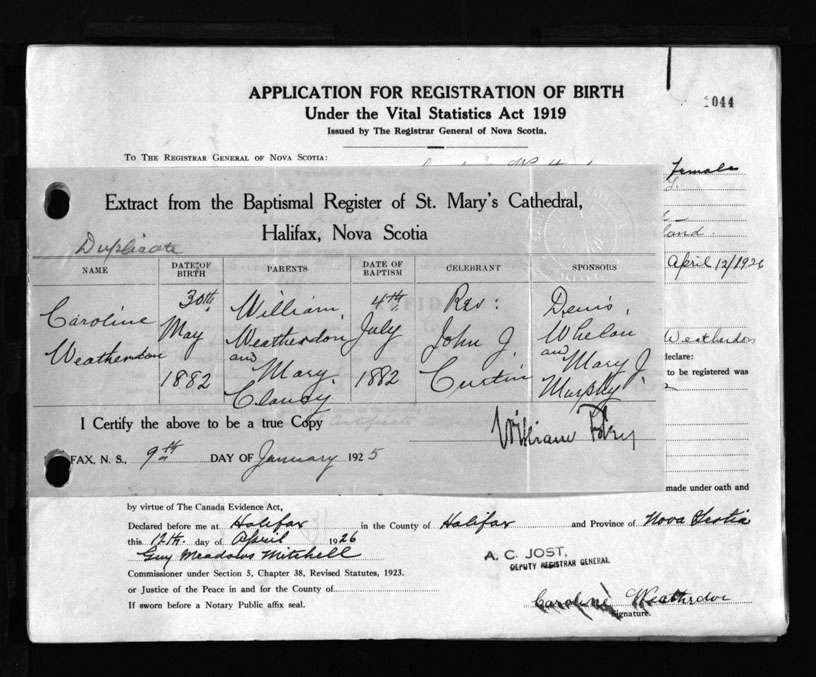 APPLICATION FOR REGISTRATION OF BIRTH
1044
Under the Vital Statistics Act 1919
Issued by The Registrar General of Nova Scotia.
To The Registrar General of Nova Scotia:
Female
land.
April 12/1926
Weatherdon
declare:
to be registered was
Extract from the Baptismal Register of St. Mary's Cathedral,
Halifax, Nova Scotia
Duplicate
NAME DATE OF BIRTH PARENTS DATE OF BAPTISM CELEBRANT SPONSORS
Caroline Weatherdon 30th May 1882 William Weatherdon and Mary Clancy 4th July 1882 Rev: John J. Curtin Denis Whelan and Mary J. Murphy
I Certify the above to be a true Copy
William
FAX, N. S., 9th DAY OF January 1925
made under oath and
by virtue of The Canada Evidence Act,
Declared before me at Halifax in the County of Halifax and Province of Nova Scotia
this 12th. day of April 1926
Guy Meadows Mitchell
A. C. JOST,
DEPUTY REGISTRAR GENERAL
Commissioner under Section 5, Chapter 38, Revised Statutes, 1923.
or Justice of the Peace in and for the County of
If sworn before a Notary Public affix seal.
Caroline
Signature.